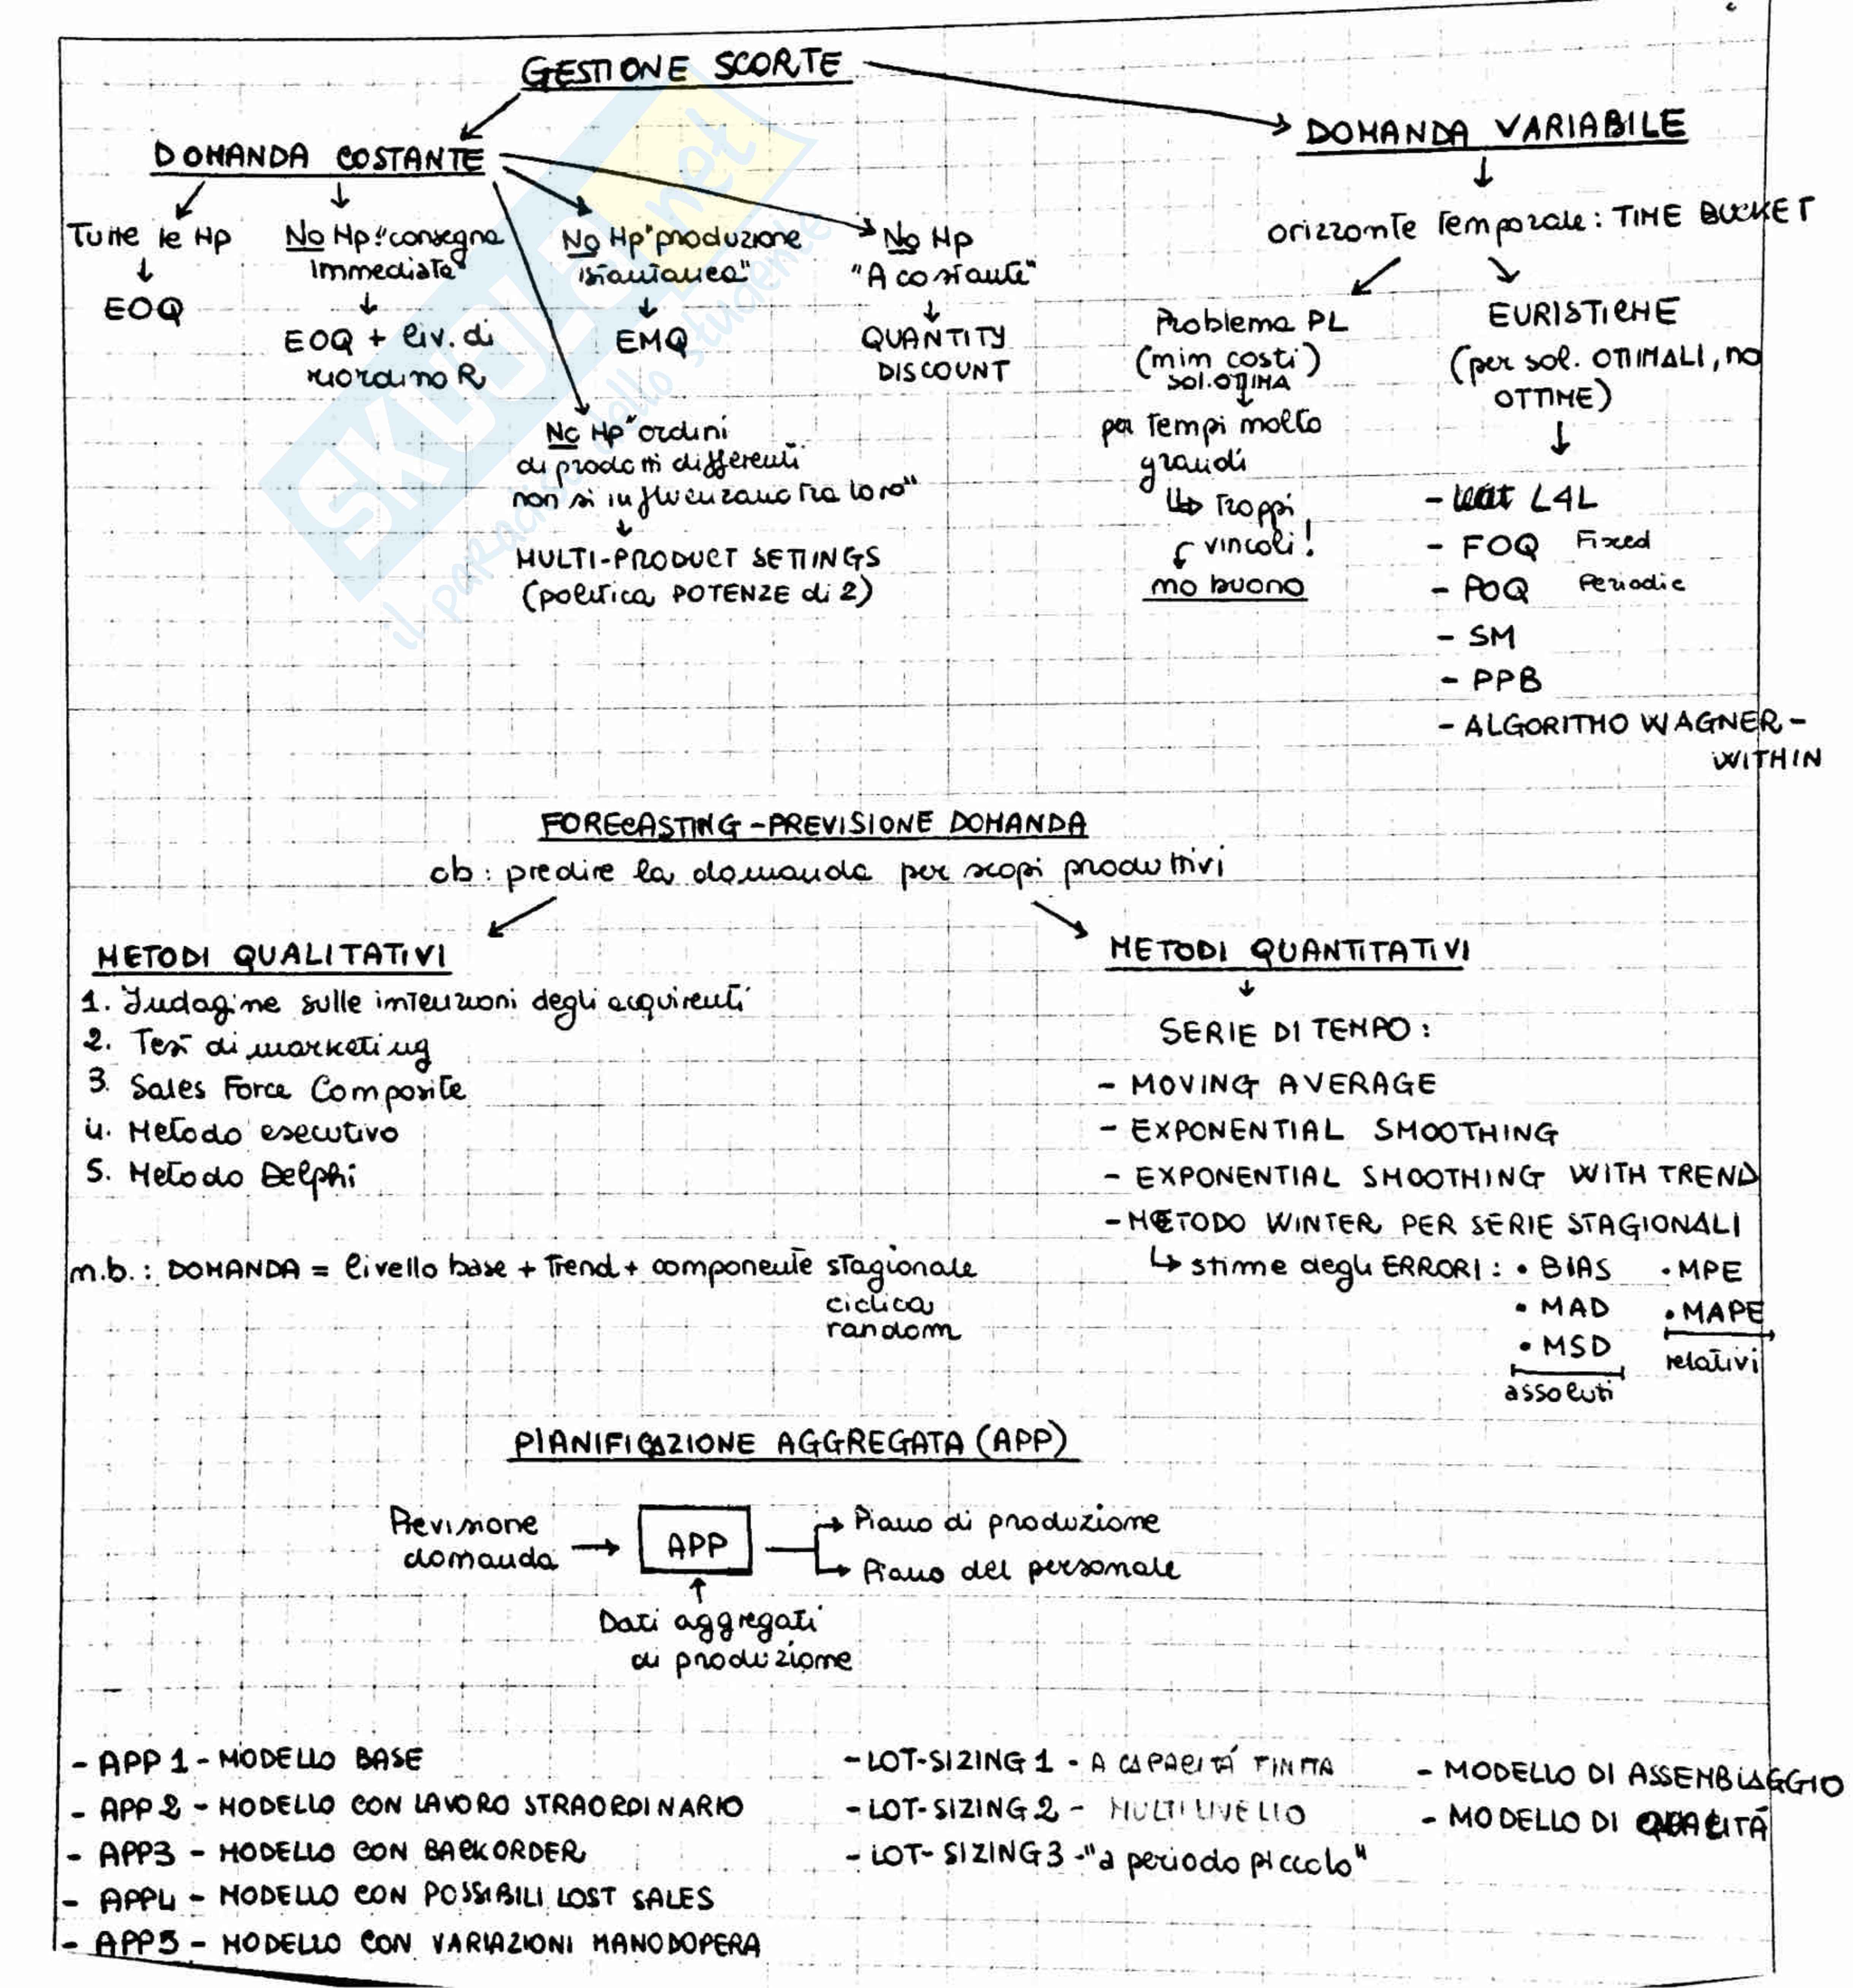 GESTIONE SCORTE
DOMANDA COSTANTE
Tutte le Hp
EOQ
No Hp "consegna
immediata"
EOQ + liv. di
riordino R
No Hp "produzione
istantanea"
EMQ
No Hp
"A costante"
QUANTITY
DISCOUNT
No Hp "ordini
di prodotti differenti
non si influenzano tra loro"
MULTI-PRODUCT SETTINGS
(politica POTENZE di 2)
DOMANDA VARIABILE
orizzonte temporale: TIME BUCKET
Problema PL
(min costi)
SOL. OTTIMA
per tempi molto
grandi
troppi
vincoli!
no buono
EURISTICHE
(per sol. OTTIMALI, no
OTTIME)
- L4L
- FOQ Fixed
- POQ Periodic
- SM
- PPB
- ALGORITMO WAGNER-
WITHIN
FORECASTING - PREVISIONE DOMANDA
ob: predire la domanda per scopi produttivi
METODI QUALITATIVI
1. Indagine sulle intenzioni degli acquirenti
2. Test di marketing
3. Sales Force Composite
4. Metodo esecutivo
5. Metodo Delphi
n.b.: DOMANDA = livello base + trend + componente stagionale
ciclica
random
METODI QUANTITATIVI
SERIE DI TEMPO:
- MOVING AVERAGE
- EXPONENTIAL SMOOTHING
- EXPONENTIAL SMOOTHING WITH TREND
- METODO WINTER PER SERIE STAGIONALI
stime degli ERRORI: • BIAS • MPE
• MAD • MAPE
• MSD relativi
assoluti
PIANIFICAZIONE AGGREGATA (APP)
Previsione
domanda
APP
Piano di produzione
Piano del personale
Dati aggregati
di produzione
- APP 1 - MODELLO BASE
- APP 2 - MODELLO CON LAVORO STRAORDINARIO
- APP3 - MODELLO CON BACKORDER
- APP4 - MODELLO CON POSSIBILI LOST SALES
- APP5 - MODELLO CON VARIAZIONI MANODOPERA
- LOT-SIZING 1 - A CAPACITÁ FINITA
- LOT-SIZING 2 - MULTILIVELLO
- LOT-SIZING 3 - "a periodo piccolo"
- MODELLO DI ASSEMBLAGGIO
- MODELLO DI QUALITÁ
SKUOLA.net
il paradiso dello studente